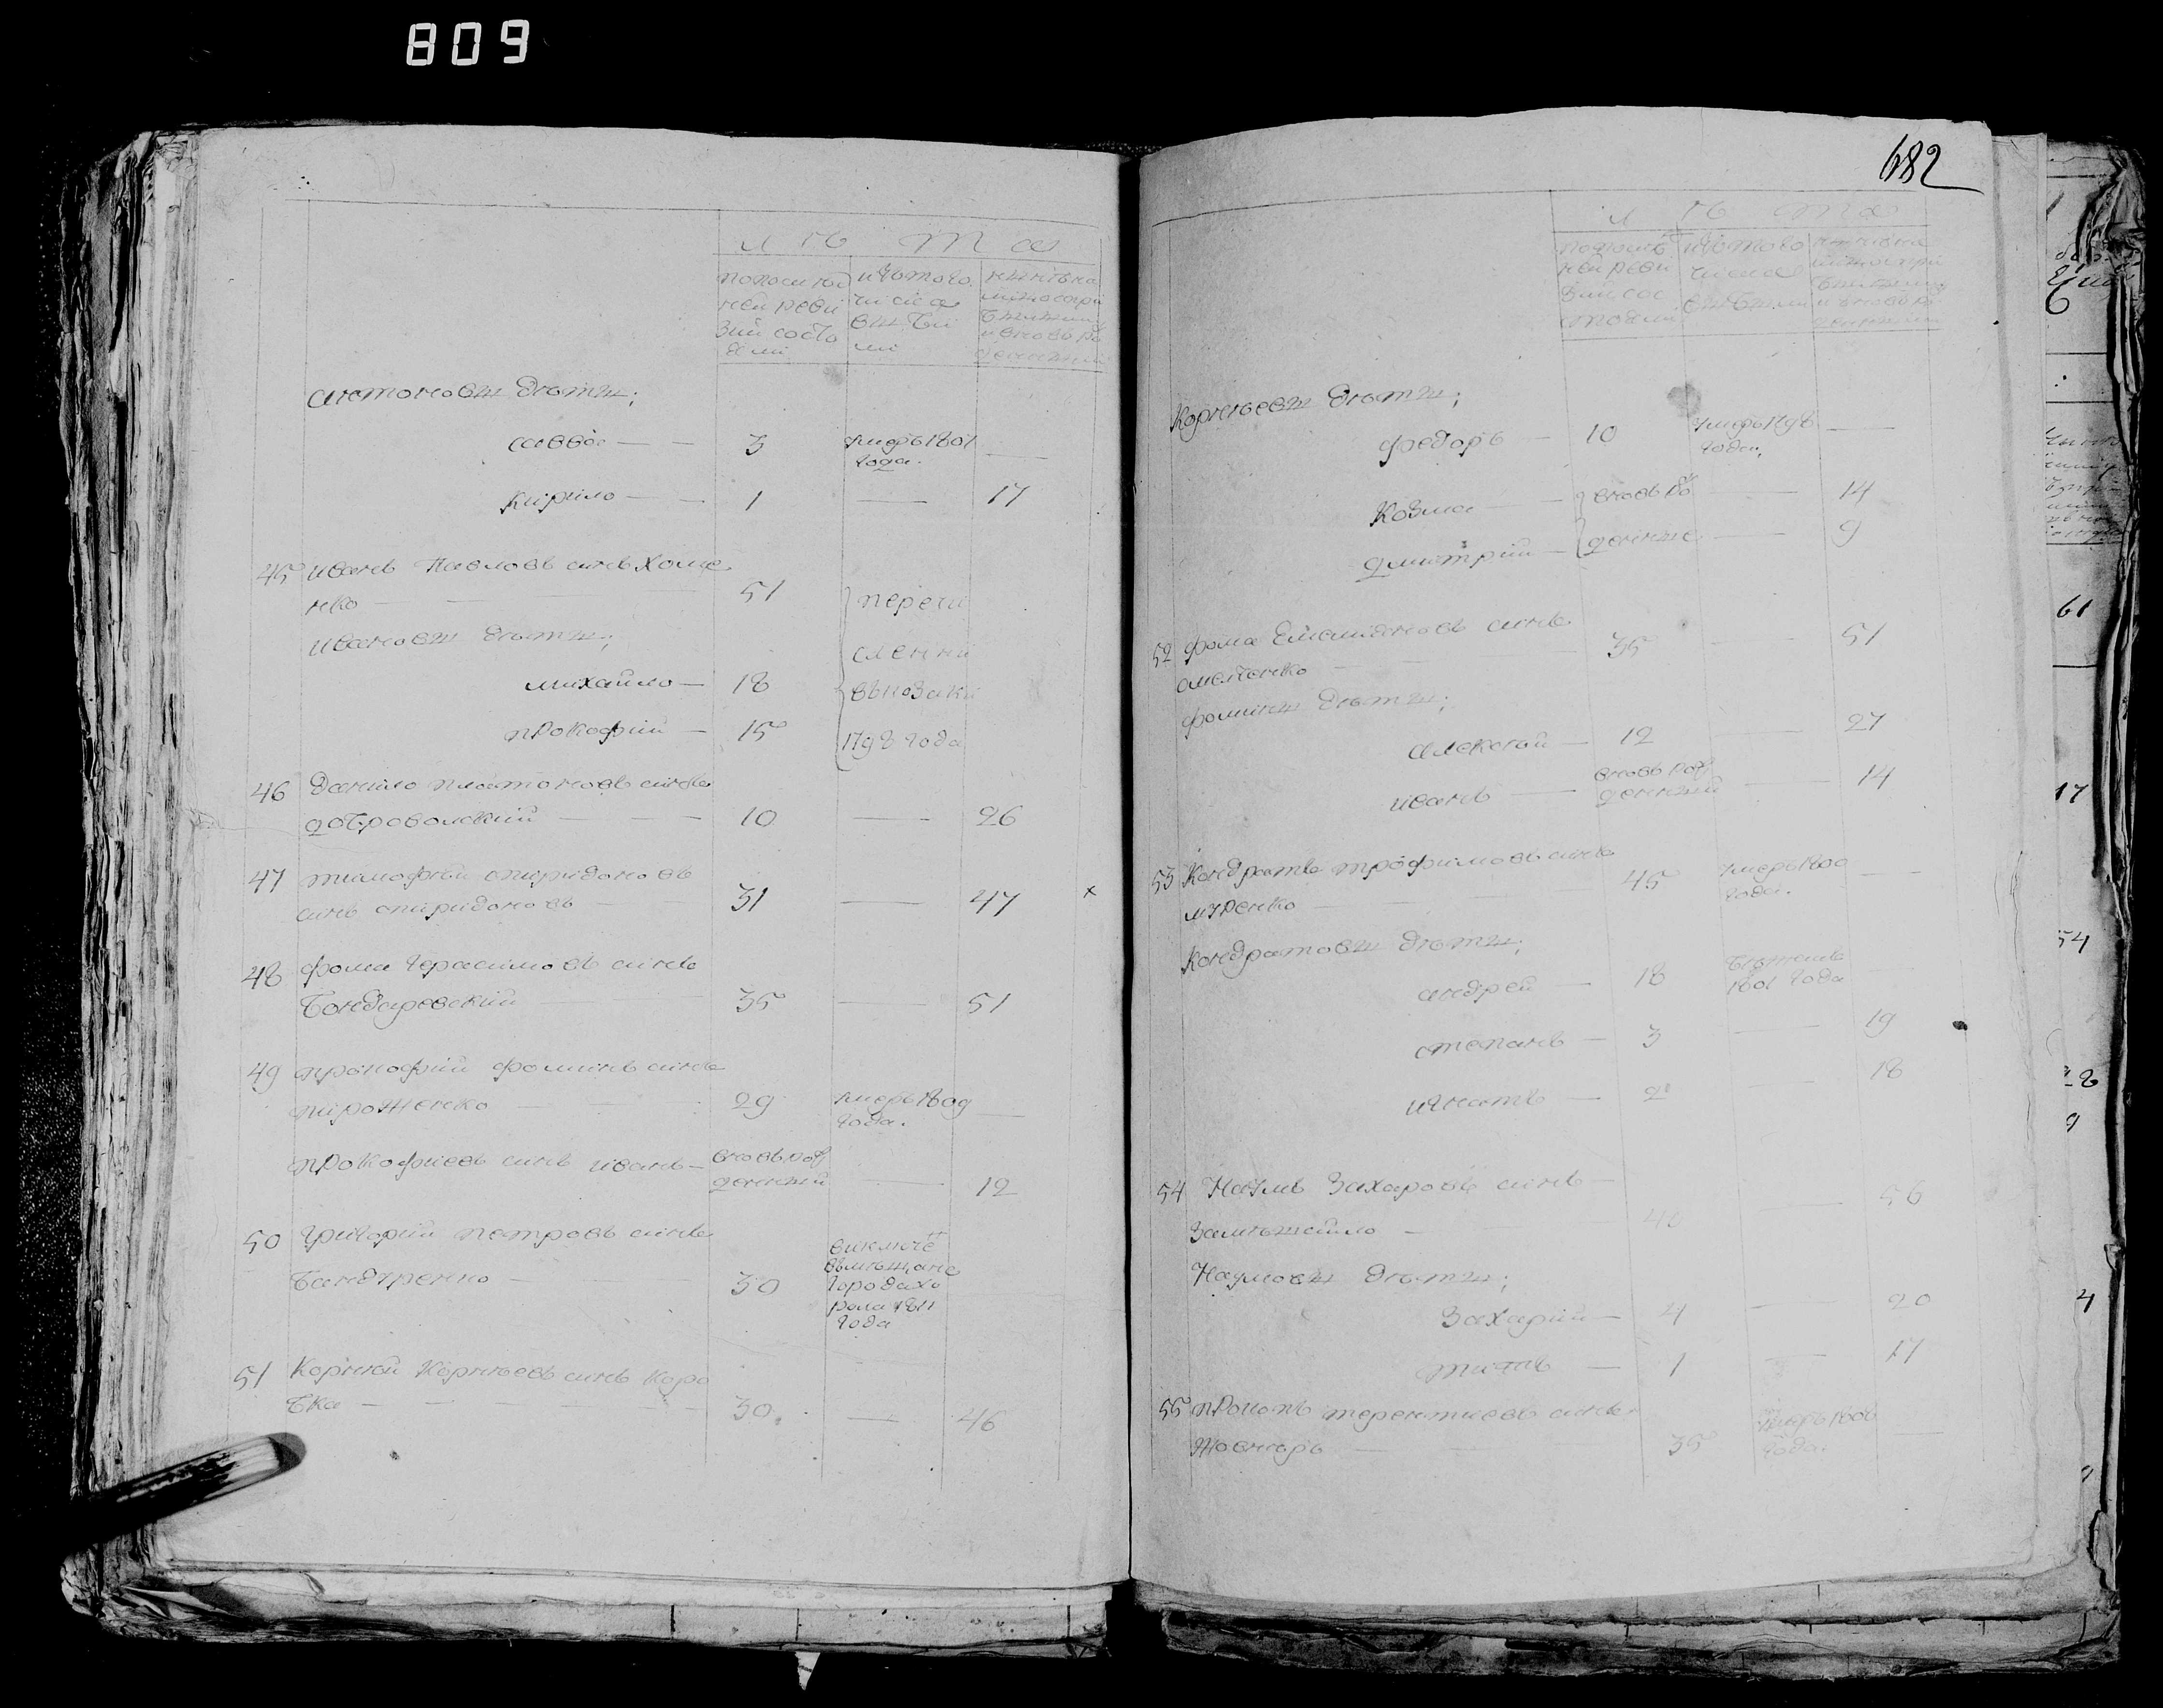 809
682
лѣта
попослѣд
ней реви
зіи состо
яли
изътого
числа
выбы
ли
нынѣна
лицосопри
бывшими
и вновь ро
жденными
антоновы дѣти;
савва — — 3 умеръ 1801 —
года.
кирило — — 1 — 17
45 иванъ павловъ сынъ хоме
нко — — 51 перечи
ивановы дѣти; сленны
михайло — 18 въкозаки
прокофій — 15 1798 года
46 данило платоновъ сынъ
добровольскій — — 10 — 26
47 тимофѣй спиридоновъ
сынъ спиридоновъ — — 31 — 47
48 фома герасимовъ сынъ
бондаревскій — 35 — 51
49 прокофій фоминъ сынъ
пироженко — — 29 умеръ 1809 —
года.
прокофиевъ сынъ иванъ — вновь рож
денный — 12
50 григорій петровъ сынъ
бандуренко — — 30 виключе
вьмѣщане
города хо
рола 1811
года
51 Корнѣй Корнѣевъ сынъ Коро
бка — — — 30. — 46
лѣта
попослѣд
ней реви
зіи сос
тояли
изътого
числа
выбыли
нынѣна
лицосопри
бывшими
и вновь ро
жденными
Корнѣевы дѣти;
федоръ — 10 умеръ 1798 —
года,
Козма — вновь ро — 14
дмитрій — жденные — 9
52 фома Емелияновъ сынъ
омеленко — — 35 — 51
фомины дѣти;
алексѣй — 12 — 27
иванъ — вновь рож
денный — 14
53 Кондратъ трофимовъ сынъ
муренко — — 45 умеръ 1800 —
года.
Кондратовы дѣти;
андрей — 18 бѣжалъ
1801 года —
степанъ — 3 — 19
игнатъ — 2 — 18
54 Наумъ Захаровъ сынъ —
Замѣжайло — 40 — 56
Наумовы дѣти;
Захарій — 4 — 20
титъ — 1 — 17
55 прокопъ терентиевъ сынъ
жовниръ — — 35 умеръ 1808
года. —
61
17
54
28
9
4